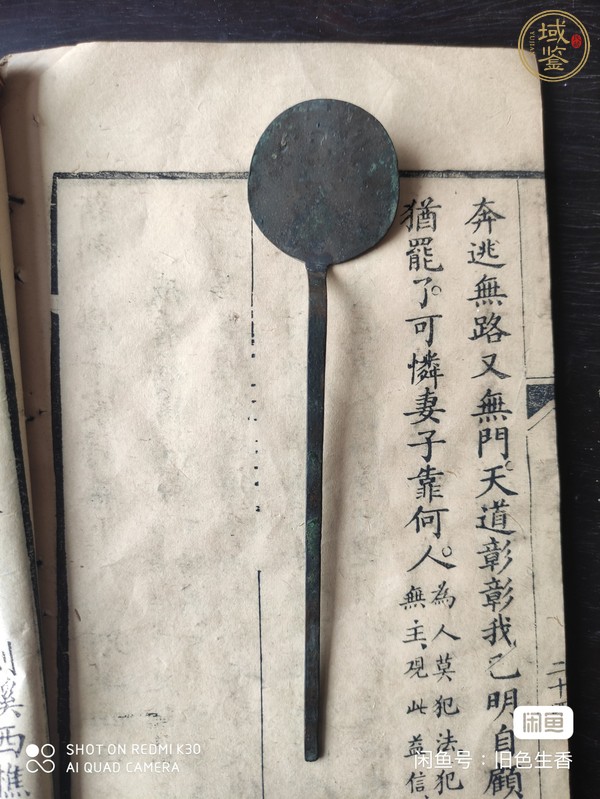 奔逃無路又無門。天道彰彰我已明自顧
猶罷了。可憐妻子靠何人。為人莫犯法犯
無主、观此益信
二十
西樵
域鉴
YUJIAN
闲鱼
闲鱼号：旧色生香
SHOT ON REDMI K30
AI QUAD CAMERA